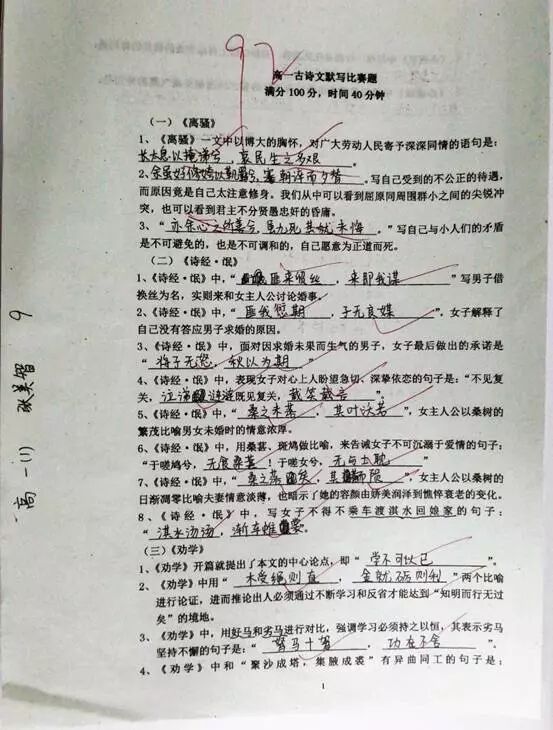 97
高一古诗文默写比赛题
满分100分,时间40分钟
(一)《离骚》
1、《离骚》一文中以博大的胸怀,对广大劳动人民寄予深深同情的语句是:
长太息以掩涕兮,哀民生之多艰。
2、余虽好修姱以鞿羁兮,謇朝谇而夕替。写自己受到的不公正的待遇,
而原因竟是自己太注意修身。我们从中可以看到屈原同周围群小之间的尖锐冲
突,也可以看到君主不分贤愚忠奸的昏庸。
3、“亦余心之所善兮,虽九死其犹未悔。”写自己与小人们的矛盾
是不可避免的,也是不可调和的,自己愿意为正道而死。
(二)《诗经·氓》
1、《诗经·氓》中,“匪来贸丝,来即我谋”写男子借
换丝为名,实则来和女主人公讨论婚事。
2、《诗经·氓》中,“匪我愆期,子无良媒”,女子解释了
自己没有答应男子求婚的原因。
3、《诗经·氓》中,面对因求婚未果而生气的男子,女子最后做出的承诺是
“将子无怒,秋以为期”
4、《诗经·氓》中,表现女子对心上人盼望急切、深挚依恋的句子是:“不见复
关,泣涕涟涟既见复关,载笑载言”。
5、《诗经·氓》中,“桑之未落,其叶沃若”,女主人公以桑树的
繁茂比喻男女未婚时的情意浓厚。
6、《诗经·氓》中,用桑葚、斑鸠做比喻,来告诫女子不可沉溺于爱情的句子:
“于嗟鸠兮,无食桑葚!于嗟女兮,无与士耽”
7、《诗经·氓》中,“桑之落矣,其而陨”,女主人公以桑树的
日渐凋零比喻夫妻情意淡薄,也暗示了她的容颜由娇美润泽到憔悴衰老的变化。
8、《诗经·氓》中,写女子不得不乘车渡淇水回娘家的句子:
“淇水汤汤,渐车帷裳。”
(三)《劝学》
1、《劝学》开篇就提出了本文的中心论点,即“学不可以已”。
2、《劝学》中用“木受绳则直,金就砺则利”两个比喻
进行论证,进而推论出人必须通过不断学习和反省才能达到“知明而行无过
矣”的境地。
3、《劝学》中,用好马和劣马进行对比,强调学习必须持之以恒,其表示劣马
坚持不懈的句子是:“驽马十驾,功在不舍”。
4、《劝学》中和“聚沙成塔,集腋成裘”有异曲同工的句子是:
1
高一(1) 张美智 9